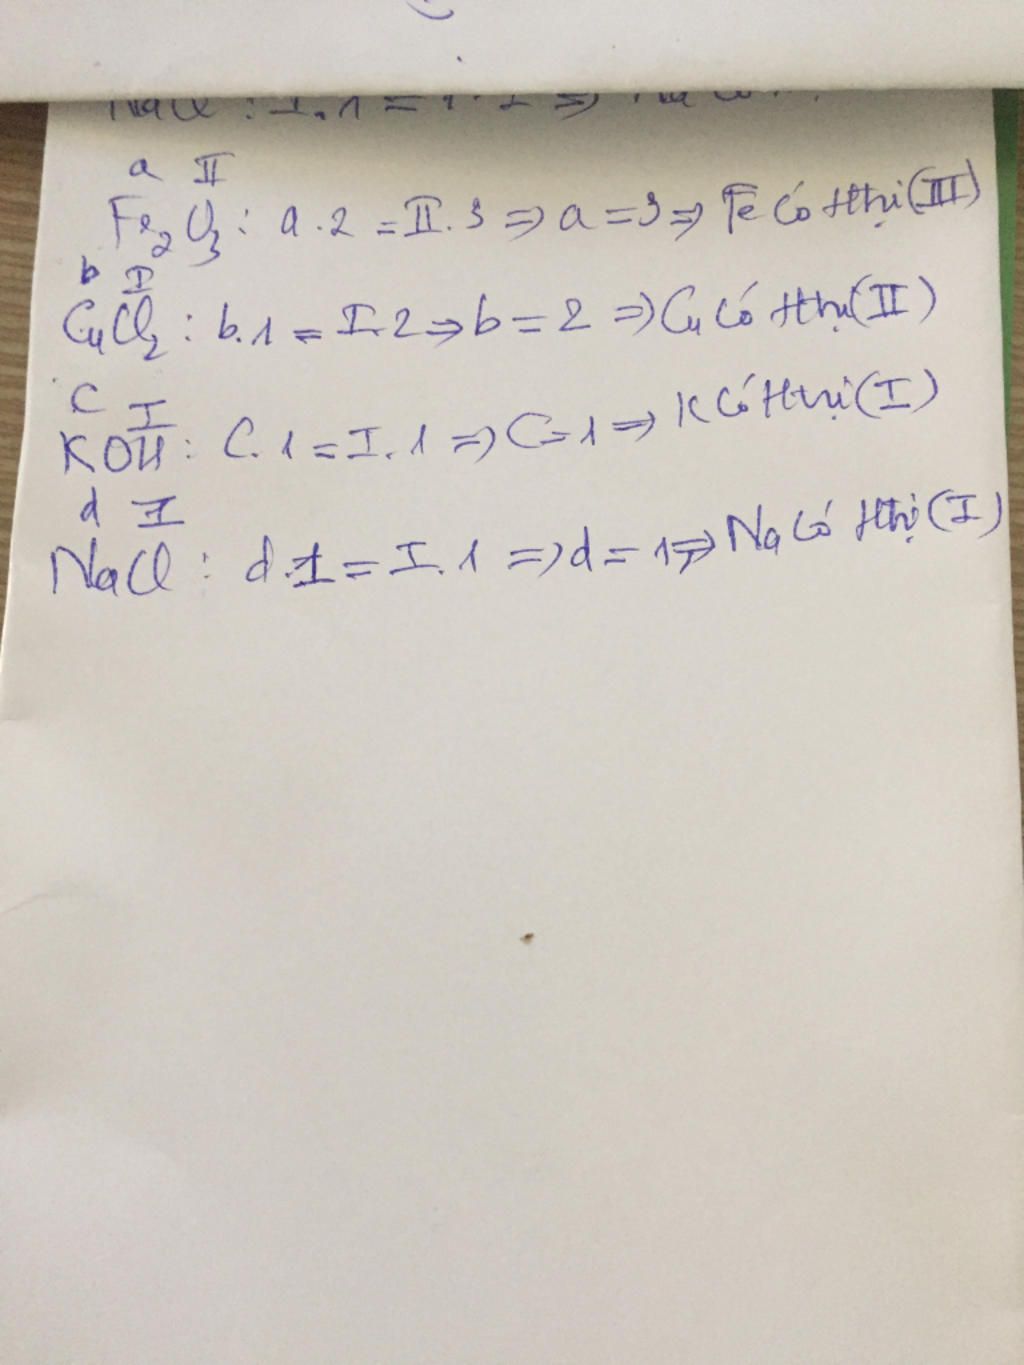 NaCl : I.1 =
a II
Fe₂O₃ : a.2 = II.3 => a = 3 => Fe có htrị (III)
b I
CuCl₂ : b.1 = I.2 => b = 2 => Cu có htrị (II)
c I
KOH : C.1 = I.1 => C = 1 => K có htrị (I)
d I
NaCl : d.1 = I.1 => d = 1 => Na có htrị (I)